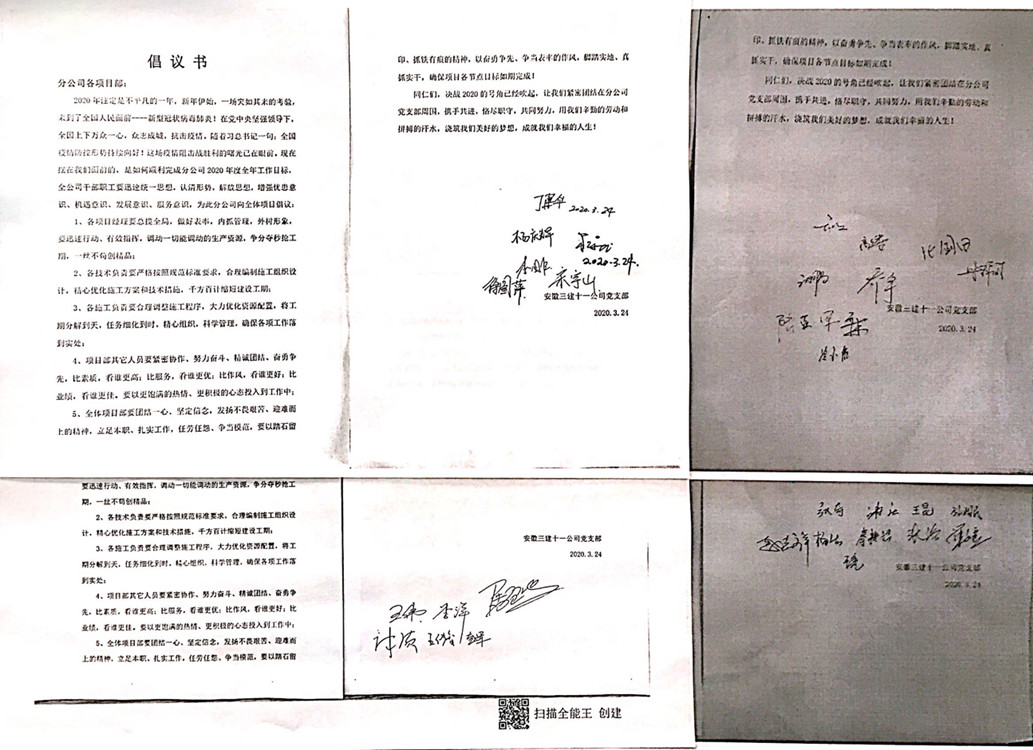 倡议书
分公司各项目部：
2020年注定是不平凡的一年，新年伊始，一场突如其来的考验，
来到了全国人民面前----新型冠状病毒肺炎！在党中央坚强领导下，
全国上下万众一心，众志成城，抗击疫情，随着习总书记一句：全国
疫情防控形势持续向好！这场疫情阻击战胜利的曙光已在眼前，现在
摆在我们面前的，是如何顺利完成分公司2020年度全年工作目标，
全公司干部职工要迅速统一思想，认清形势，解放思想，增强忧患意
识、机遇意识、发展意识、服务意识，为此分公司向全体项目倡议：
1、各项目经理要总揽全局，做好表率，内抓管理，外树形象，
要迅速行动、有效指挥，调动一切能调动的生产资源，争分夺秒抢工
期，一丝不苟创精品；
2、各技术负责要严格按照规范标准要求，合理编制施工组织设
计，精心优化施工方案和技术措施，千方百计缩短建设工期；
3、各施工负责要合理调整施工程序，大力优化资源配置，将工
期分解到天，任务细化到时，精心组织，科学管理，确保各项工作落
到实处；
4、项目部其它人员要紧密协作、努力奋斗、精诚团结、奋勇争
先，比素质，看谁更高；比服务，看谁更优；比作风，看谁更好；比
业绩，看谁更佳。要以更饱满的热情、更积极的心态投入到工作中；
5、全体项目部要团结一心、坚定信念，发扬不畏艰苦、迎难而
上的精神，立足本职、扎实工作，任劳任怨、争当模范，要以踏石留
印、抓铁有痕的精神，以奋勇争先、争当表率的作风，脚踏实地、真
抓实干，确保项目各节点目标如期完成！
同仁们，决战2020的号角已经吹起，让我们紧密团结在分公司
党支部周围，携手共进，恪尽职守，共同努力，用我们辛勤的劳动和
拼搏的汗水，浇筑我们美好的梦想，成就我们幸福的人生！
2020.3.24
杨庆辉
2020.3.24.
宋宇山
安徽三建十一公司党支部
2020.3.24
印、抓铁有痕的精神，以奋勇争先、争当表率的作风，脚踏实地、真
抓实干，确保项目各节点目标如期完成！
同仁们，决战2020的号角已经吹起，让我们紧密团结在分公司
党支部周围，携手共进，恪尽职守，共同努力，用我们辛勤的劳动和
拼搏的汗水，浇筑我们美好的梦想，成就我们幸福的人生！
安徽三建十一公司党支部
2020.3.24
要迅速行动、有效指挥，调动一切能调动的生产资源，争分夺秒抢工
期，一丝不苟创精品；
2、各技术负责要严格按照规范标准要求，合理编制施工组织设
计，精心优化施工方案和技术措施，千方百计缩短建设工期；
3、各施工负责要合理调整施工程序，大力优化资源配置，将工
期分解到天，任务细化到时，精心组织，科学管理，确保各项工作落
到实处；
4、项目部其它人员要紧密协作、努力奋斗、精诚团结、奋勇争
先，比素质，看谁更高；比服务，看谁更优；比作风，看谁更好；比
业绩，看谁更佳。要以更饱满的热情、更积极的心态投入到工作中；
5、全体项目部要团结一心、坚定信念，发扬不畏艰苦、迎难而
上的精神，立足本职、扎实工作，任劳任怨、争当模范，要以踏石留
安徽三建十一公司党支部
2020.3.24
王伟 李洋
王昆
安徽三建十一公司党支部
2020.3.24
扫描全能王 创建